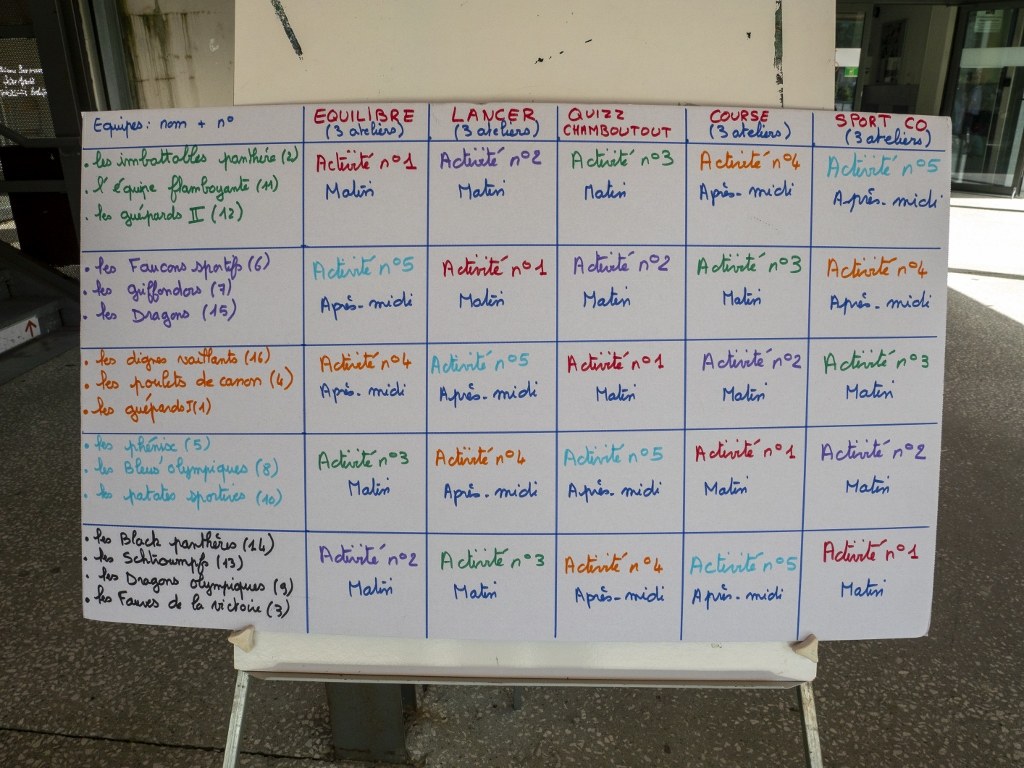 Equipes: nom + n°
EQUILIBRE
(3 ateliers)
LANCER
(3 ateliers)
QUIZZ
CHAMBOUTOUT
COURSE
(3 ateliers)
SPORT CO
(3 ateliers)
• les imbattables panthère (2)
• l'équipe flamboyante (11)
• les guépards II (12)
Activité n°1
Matin
Activité n°2
Matin
Activité n°3
Matin
Activité n°4
Après-midi
Activité n°5
Après-midi
• les Faucons sportifs (6)
• les griffondors (7)
• les Dragons (15)
Activité n°5
Après-midi
Activité n°1
Matin
Activité n°2
Matin
Activité n°3
Matin
Activité n°4
Après-midi
• les dignes vaillants (16)
• les poulets de canon (4)
• les guépards I (1)
Activité n°4
Après-midi
Activité n°5
Après-midi
Activité n°1
Matin
Activité n°2
Matin
Activité n°3
Matin
• les phénix (5)
• les Bleus olympiques (8)
• les patates sportives (10)
Activité n°3
Matin
Activité n°4
Après-midi
Activité n°5
Après-midi
Activité n°1
Matin
Activité n°2
Matin
• les Black panthères (14)
• les Schtroumpfs (13)
• les Dragons olympiques (9)
• les Fauves de la victoire (3)
Activité n°2
Matin
Activité n°3
Matin
Activité n°4
Après-midi
Activité n°5
Après-midi
Activité n°1
Matin